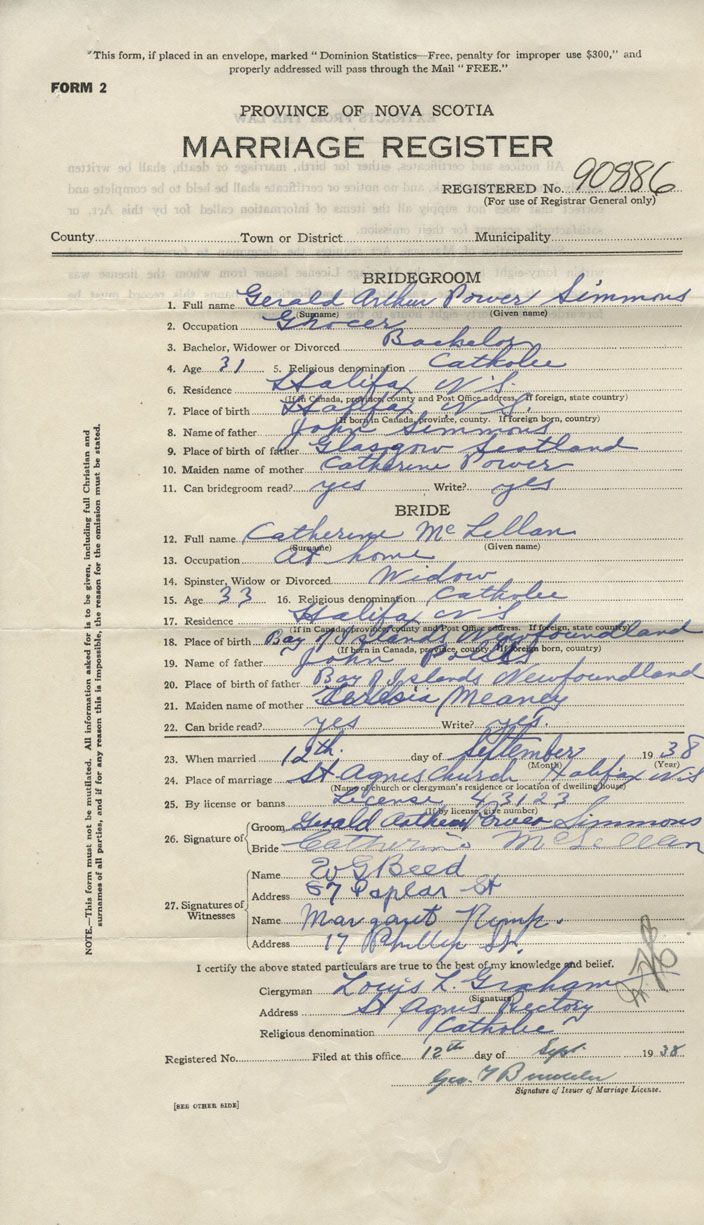 "This form, if placed in an envelope, marked "Dominion Statistics—Free, penalty for improper use $300," and
properly addressed will pass through the Mail "FREE."
FORM 2
PROVINCE OF NOVA SCOTIA
MARRIAGE REGISTER
REGISTERED No. 90886
(For use of Registrar General only)
County Town or District Municipality
BRIDEGROOM
1. Full name Gerald Arthur Power Simmons
(Surname) (Given name)
2. Occupation Grocer
3. Bachelor, Widower or Divorced Bachelor
4. Age 31 5. Religious denomination Catholic
6. Residence Halifax N.S.
(If in Canada, province, county and Post Office address. If foreign, state country)
7. Place of birth Halifax N.S.
(If born in Canada, province, county. If foreign born, country)
8. Name of father John Simmons
9. Place of birth of father Glasgow Scotland
10. Maiden name of mother Catherine Power
11. Can bridegroom read? yes Write? yes
BRIDE
12. Full name Catherine McLellan
(Surname) (Given name)
13. Occupation At home
14. Spinster, Widow or Divorced Widow
15. Age 33 16. Religious denomination Catholic
17. Residence Halifax N.S.
(If in Canada, province, county and Post Office address. If foreign, state country)
18. Place of birth Bay of Islands Newfoundland
(If born in Canada, province, county. If foreign born, country)
19. Name of father John
20. Place of birth of father Bay of Islands Newfoundland
21. Maiden name of mother Theresia Meaney
22. Can bride read? yes Write? yes.
23. When married 12th. day of September 1938
(Month) (Year)
24. Place of marriage St Agnes Church Halifax N.S
(Name of church or clergyman's residence or location of dwelling house)
25. By license or banns License 43123
(If by license, give number)
26. Signature of Groom Gerald Arthur Power Simmons
Bride Catherine McLellan
27. Signatures of Witnesses Name W G Beed
Address 57 Poplar St
Name Margaret Kemp.
Address 17 Phillip St.
I certify the above stated particulars are true to the best of my knowledge and belief.
Clergyman Louis L. Graham
(Signature)
Address St Agnes Rectory
Religious denomination Catholic
Registered No. Filed at this office 12th day of Sept. 1938
Geo.
Signature of Issuer of Marriage License.
[SEE OTHER SIDE]
NOTE.—This form must not be mutilated. All information asked for is to be given, including full Christian and
surnames of all parties, and if for any reason this is impossible, the reason for the omission must be stated.